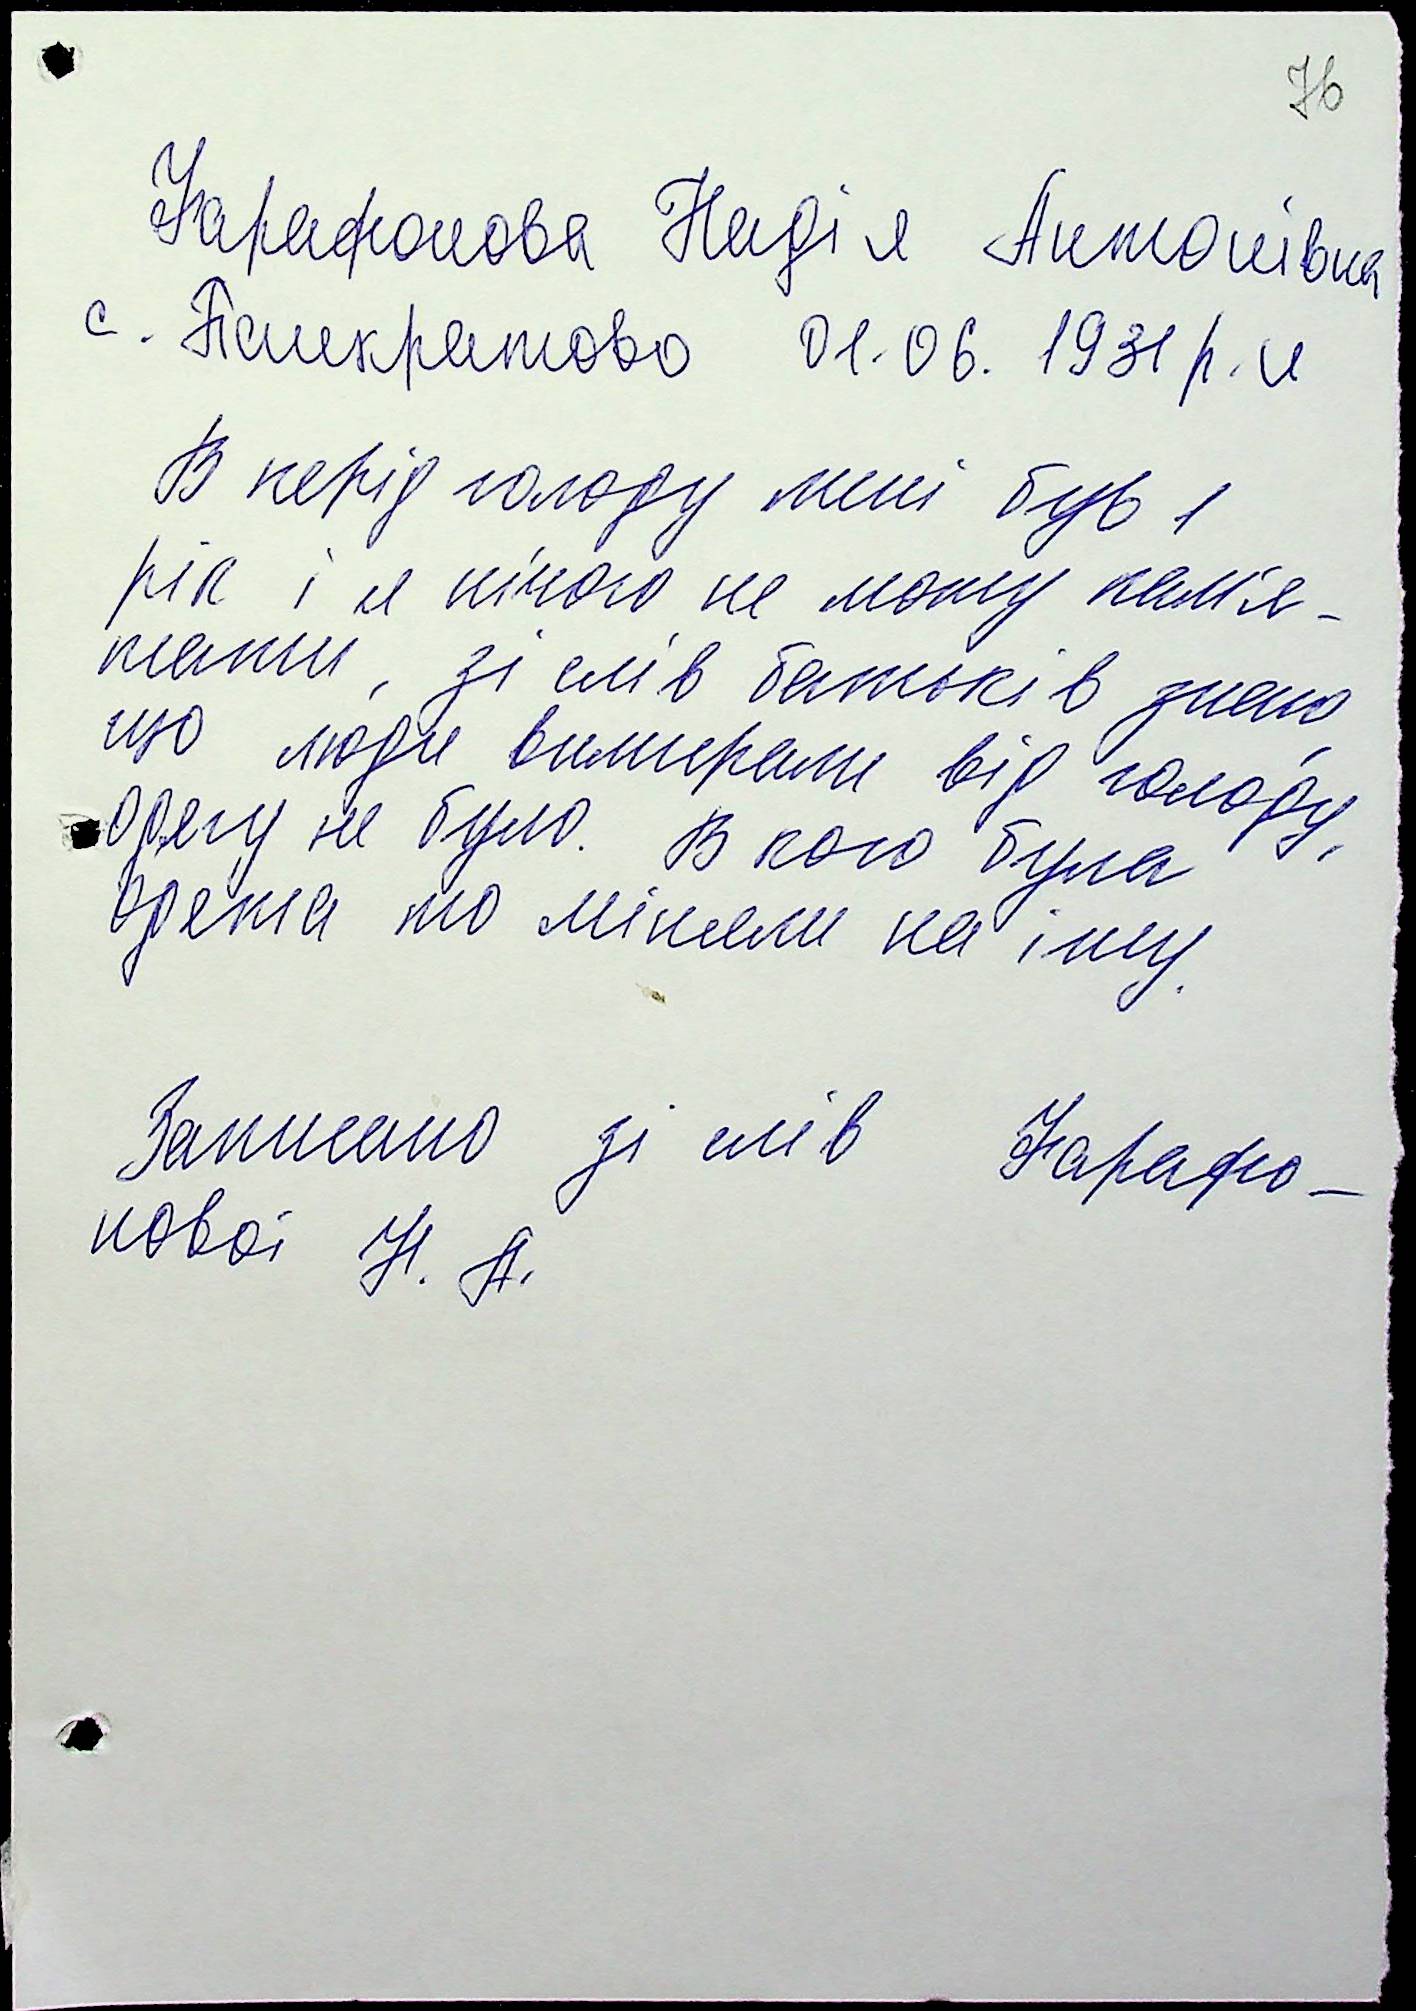 76
Харафонова Надія Антонівна
с. Панкратово 01.06.1931 р.н
В перід голоду мені був 1
рік і я нічого не можу пам'я-
тати, зі слів батьків знаю,
що люди вимирали від голоду,
одягу не було. В кого була
одежа то міняли на їжу.
Записано зі слів Харафо-
нової Н. А.